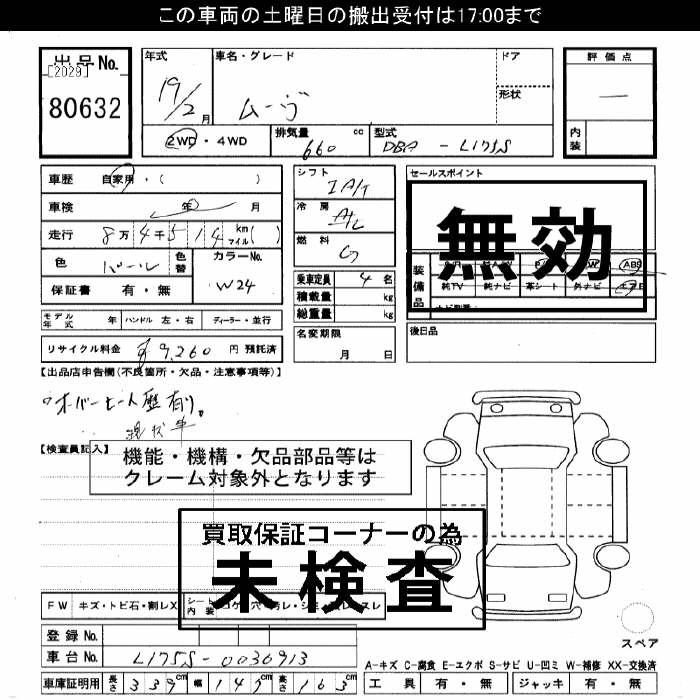 この車両の土曜日の搬出受付は17:00まで
出品No.
[2029]
80632
年式 車名・グレード ドア
19/2月 ムーヴ 形状
2WD・4WD 排気量 660 cc 型式 DBA - L175S
評価点
―
内装
車歴 自家用・( )
車検 年 月
走行 8万4千514 km マイル( )
色 パール 色替 カラーNo. W24
保証書 有・無
モデル年式 年 ハンドル 左・右 ディーラー・並行
リサイクル料金 ¥9,260 円 預託済
シフト IA/T
冷房 A/C
燃料 G
乗車定員 4名
積載量 kg
総重量 kg
名変期限
月 日
セールスポイント
無効
装備品 ABS
純TV 純ナビ 革シート 外ナビ エアB
後日品
【出品店申告欄(不良箇所・欠品・注意事項等)】
オーバーヒート歴有り。
現状車
【検査員記入】
機能・機構・欠品部品等は
クレーム対象外となります
買取保証コーナーの為
未検査
FW キズ・トビ石・割レX シート内装
登録No.
車台No. L175S-0036913
車庫証明用 長さ 339cm 幅 147cm 高さ 163cm
スペア
A-キズ C-腐食 E-エクボ S-サビ U-凹ミ W-補修 XX-交換済
工具 有・無 ジャッキ 有・無